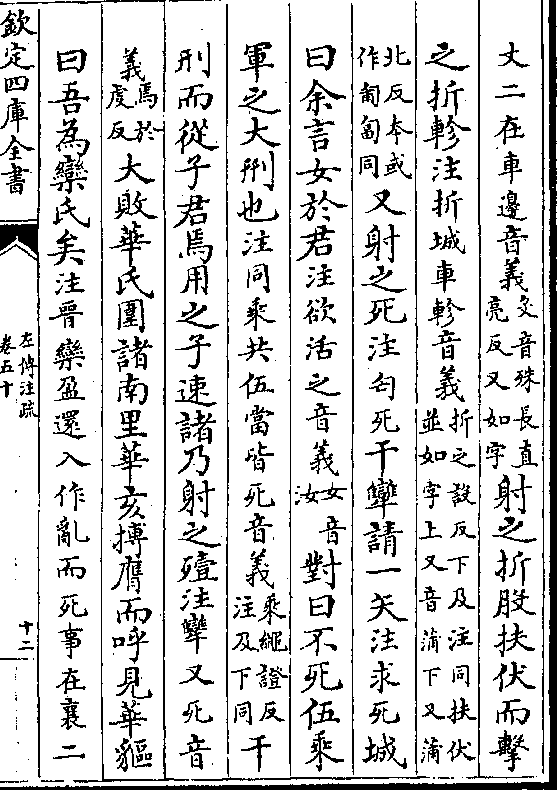 丈二在車邊音義殳音殊長直亮反又如字射之折股扶伏而擊
之折軫注折城車軫音義折之設反下及注同扶伏並如字上又音蒲下又蒲
北反本或作匍匐同又射之死注匄死干犨請一矢注求死城
曰余言女於君注欲活之音義女音汝對曰不死伍乘
軍之大刑也注同乘共伍當皆死音義乘繩證反注及下同干
刑而從子君焉用之子速諸乃射之殪注犨又死音
義焉於虔反大敗華氏圍諸南里華亥搏膺而呼見華貙
曰吾為欒氏矣注晉欒盈還入作亂而死事在襄二
欽定四庫全書
左傳注疏
卷五十
十二